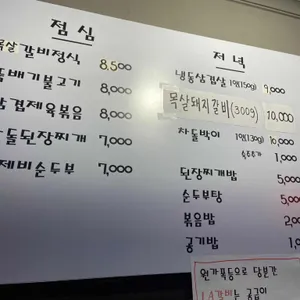 점심
목살갈비정식 8,500
뚝배기불고기 8,000
삼겹제육볶음 8,000
차돌된장찌개 7,000
수제비순두부 7,000
저녁
냉동삼겹살 1인(150g) 9,000
목살돼지갈비(300g) 10,000
차돌박이 1인(130g) 10,000
1,000
된장찌개밥 5,000
순두부탕 5,000
볶음밥 2,000
공기밥 1,0
원가폭등으로 당분간
LA갈비는 공급이